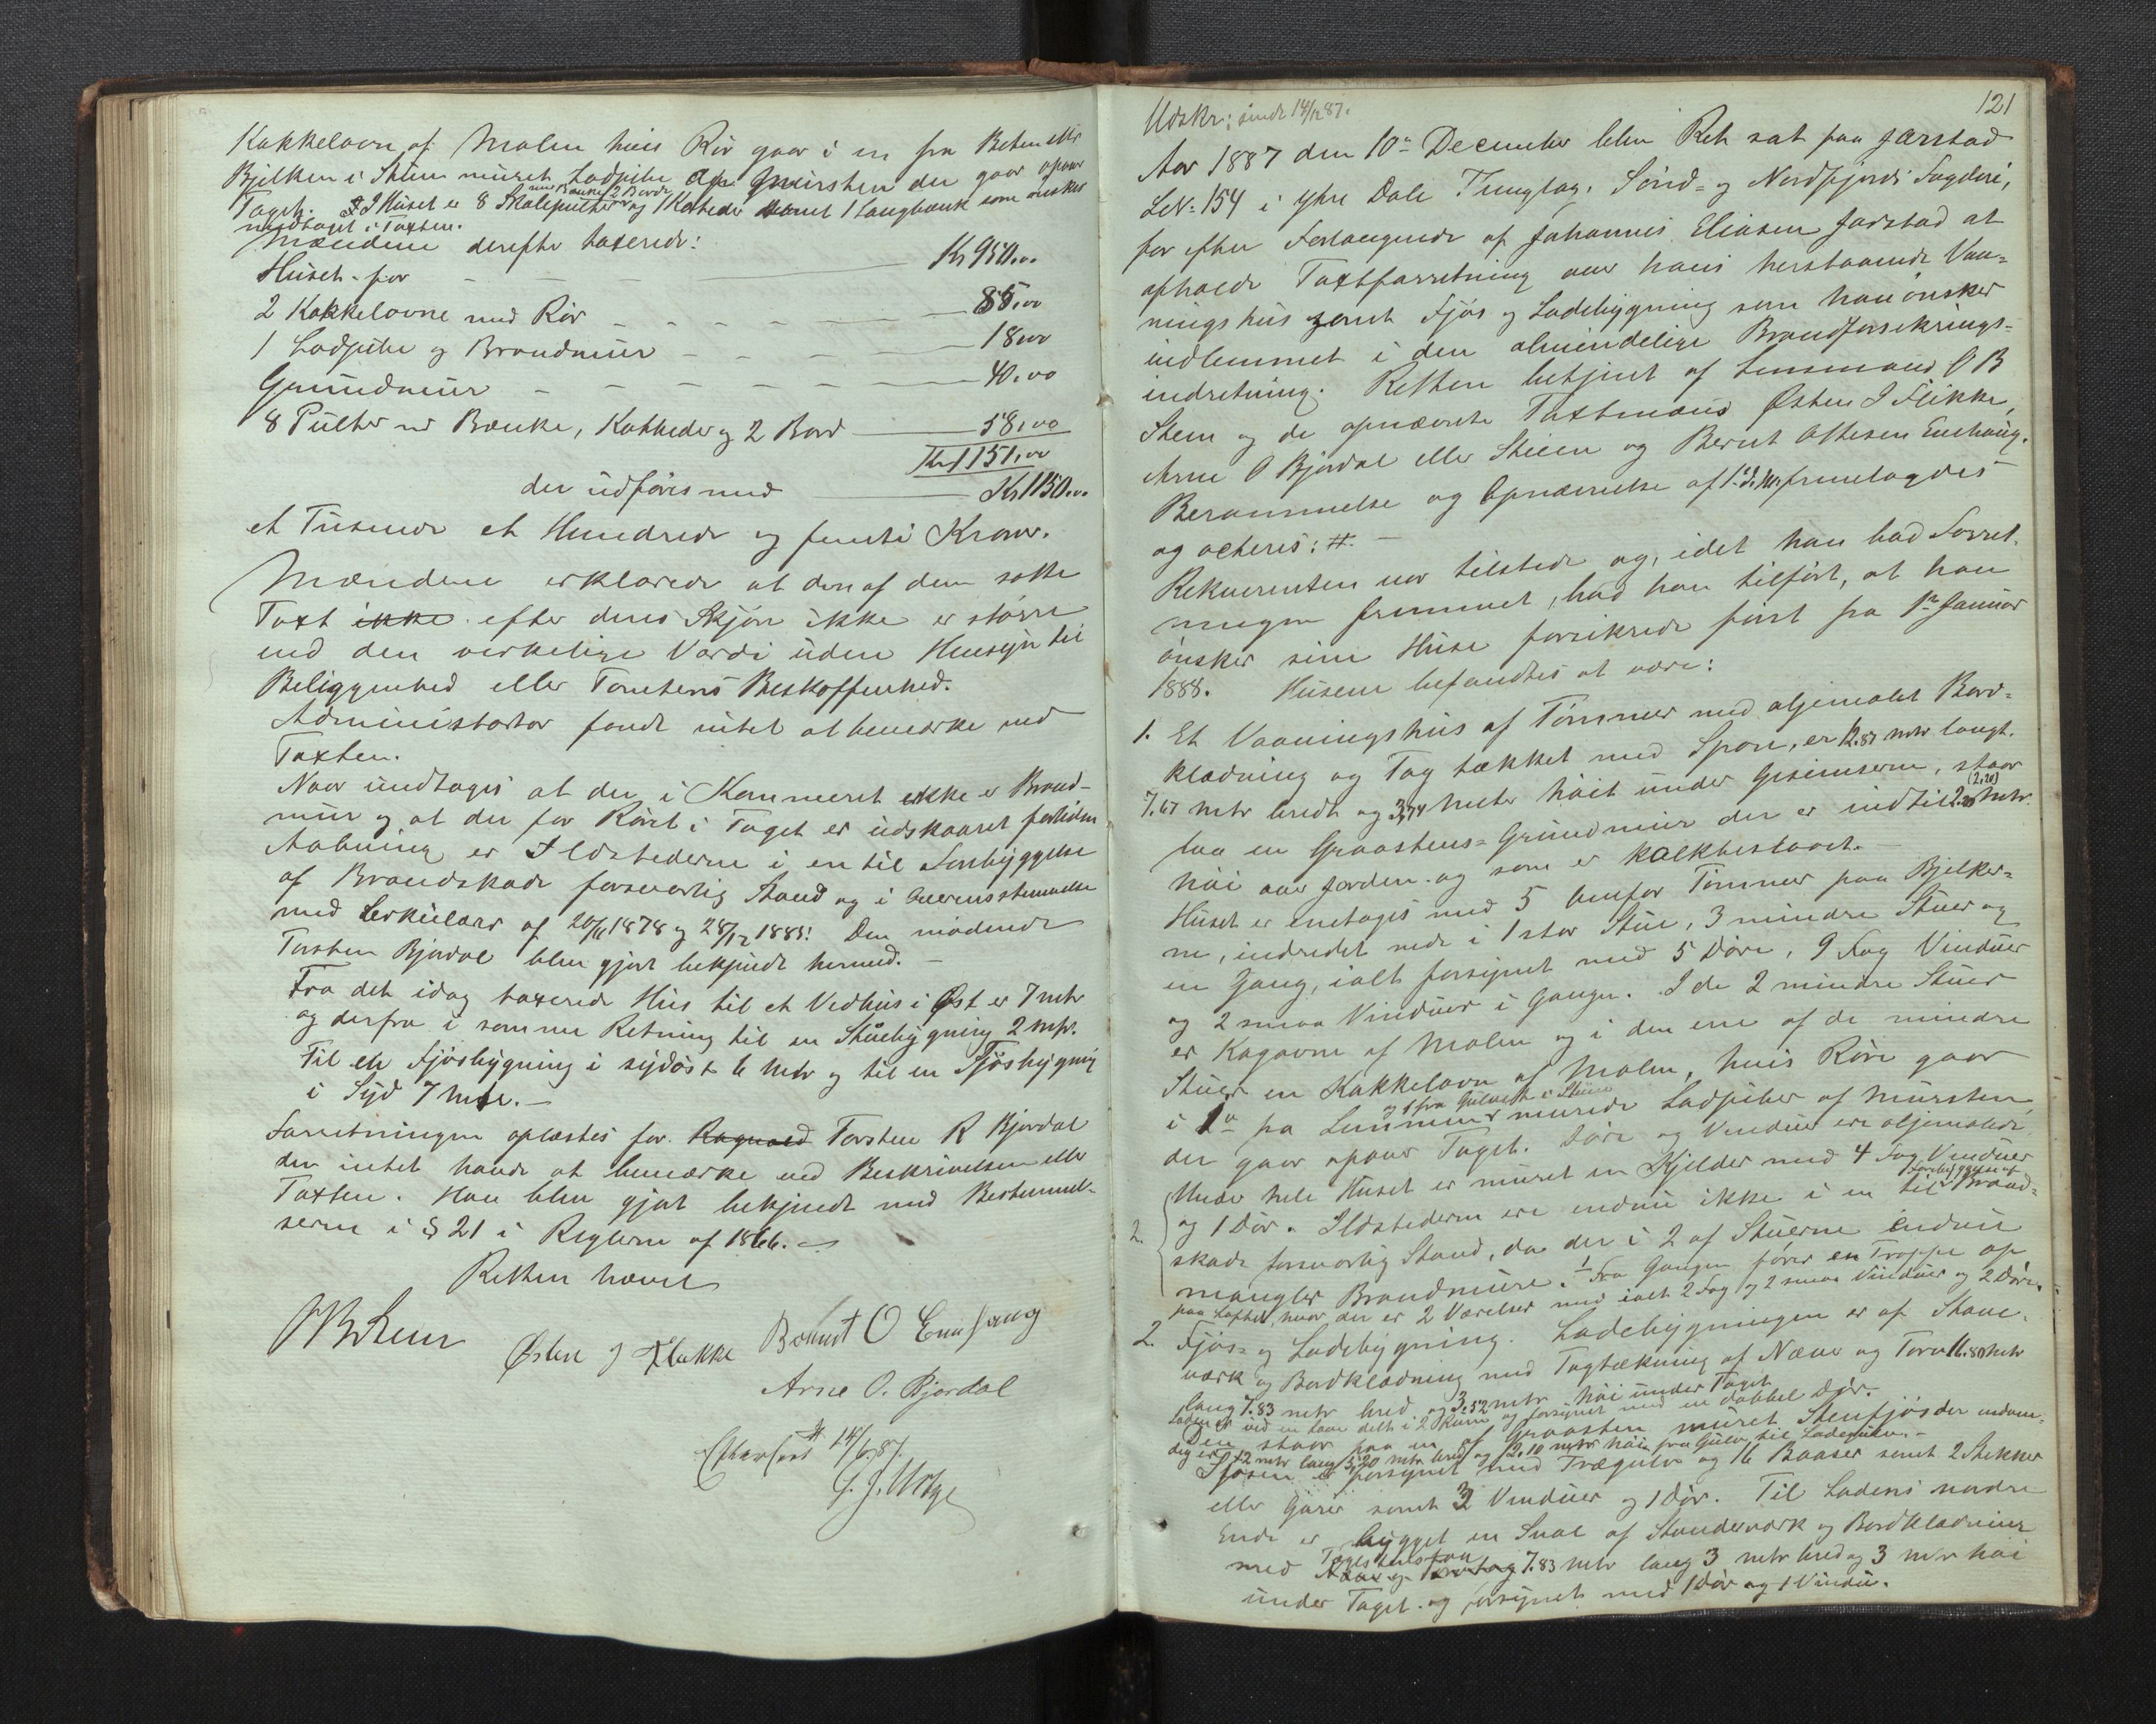 Kakkelovn af Malm hvis Rör gaar i en fra Beten eller
Bjelken i Stuen muret Ladpibe af Mursten der gaar opaver
Taget. I Huset er 8 Skolepulter med Bænke, 2 Borde og 1 Kateder samt 1 Langbænk som önskes
medtaget i Taxten.
Mændene derefter taxerede:
Huset for - - - Kr 950.00
2 Kakkelovne med Rör - - - - - 85,00
1 Ladpibe og Brandmur - - - 18,00
Grundmur - - - - - - 40.00
8 Pulter m Bænke, Katheder og 2 Bord 58,00
Kr 1151,00
der udföres med Kr 1150.00
et Tusinde et Hundrede og femti Kroner.
Mændene erklærede at den af dem satte
Taxt ikke efter deres Skjön ikke er större
end den virkelige Værdi uden Hensyn til
Beliggenhed eller Tomtens Beskaffenhed.
Administrator fandt intet at bemærke ved
Taxten.
Naar undtages at der i Kammeret ikke er Brand-
mur og at der for Röret i Taget er udskaaret forliden
Aabning er Ildstederne i en til Forebyggelse
af Brandskade forsvarlig Stand og i Overensstemmelse
med Cirkulære af 20/11 1878 og 28/12 1885. Den mödende
Torsten Bjordal blev gjort bekjendt hermed.-
Fra det idag taxerede Hus til et Vedhus i Öst er 7 mtr
og derfra i samme Retning til en Stuebygning 2 mtr.
Til en Fjösbygning i sydöst 6 mtr og til en Fjösbygning
i Syd 7 mtr.-
Forretningen oplæstes for Ragnald Torsten R Bjordal
der intet havde at bemærke ved Beskrivelsen eller
Taxten. Han blev gjort bekjendt med Bestemmel-
serne i § 21 i Reglerne af 1866.-
Retten hævet
O B Steen Östen J Flekke Bernt O Enehaug
Arne O. Bjordal
Efterseet 14/6 87.
Udskr: sendt 14/12 87.
121
Aar 1887 den 10de December blev Ret sat paa Jarstad
LN. 154 i ytre Dale Thinglag, Sönd- og Nordfjords Fogderi,
for efter Forlangende af Johannes Eliasen Jarstad at
afholde Taxtforretning over hans herstaaende Vaa-
ningshus samt Fjös og Ladebygning som han önsker
indlemmet i den almindelige Brandforsikrings-
indretning. Retten betjent af Lensmand O B
Steen og de opnævnte Taxtmænd Östen J Flekke,
Arne O Bjordal eller Steien og Bernt Ottesen Enehaug.
Berammelse og Opnævnelse af 1ste d. M. fremlagdes
og acteres: #. -
Rekvirenten var tilstede og, idet han bad Forret-
ningen fremmet, bad han tilfört, at han
önsker sine Huse forsikrede först fra 1ste Januar
1888. Husene befandtes at være:
1. Et Vaaningshus af Tömmer med oljemalet Bord-
klædning og Tag tækket med Spon, er 12.87 mtr langt.
7.67 mtr bredt og 3,74 meter höit under Gesimserne, staar
(2,20)
paa en Graastens-Grundmur der er indtil 2.20 mtr
höi over Jorden og som er kalkbeslaaet.-
Huset er enetages med 5 Omfar Tömmer paa Bjelker-
ne, indredet nede i 1 stor Stue, 3 mindre Stuer og
en Gang, ialt forsynet med 5 Döre, 9 Fag Vinduer
og 2 smaa Vinduer i Gangen. I de 2 mindre Stuer
er Kogovne af Malm og i den ene af de mindre
Stuer en Kakkelovn af Malm, hvis Röre gaar
og 1 fra Gulvet i Stuen
i 1 fra Lemmen murede Ladpiber af Mursten
der gaar opaver Taget. Döre og Vinduer ere oljemalede.
Under hele Huset er muret en Kjelder med 4 Fag Vinduer
2. og 1 Dör. Ildstederne ere endnu ikke i en til Forebyggelse af Brand-
skade forsvarlig Stand, da der i 2 af Stuerne endnu
mangler Brandmure. Fra Gangen förer en Trappe op
paa Loftet, hvor der er 2 Værelser med ialt 2 Fag og 2 smaa Vinduer og 2 Döre.
2. Fjös- og Ladebygning. Ladebygningen er af Stave-
værk og Bordklædning med Tagtækning af Næver og Torv 16.80 mtr
lang 7.83 mtr bred og 3.52 mtr höi under Taget
Laden er ved en Laave delt i 2 Rum og forsynet med en dobbel Dör.
Den staar paa en af Graasten muret Stenfjös der indven-
dig er 12 mtr lang 5.20 mtr bred og 2.10 mtr höi fra Gulv til Ladegulv.-
Fjösen er forsynet med Trægulv og 16 Baaser samt 2 Stekker
eller Garer samt 3 Vinduer og 1 Dör. Til Ladens nedre
Ende er bygget en Sval af Standerværk og Bordklædning
med Tagstenstag 7.83 mtr lang 3 mtr bred og 3 mtr höi
under Taget og forsynet med 1 Dör og 1 Vindu.